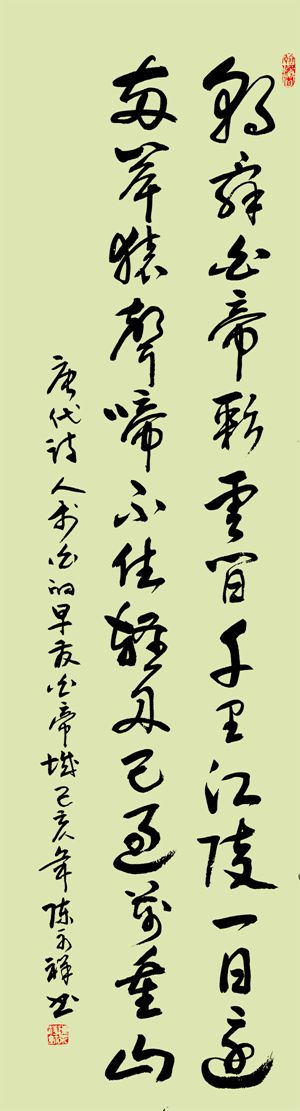 朝辞白帝彩雲间千里江陵一日還
两岸猿聲啼不住輕舟已過萬重山
唐代诗人李白的早发白帝城己亥年陈永祥书